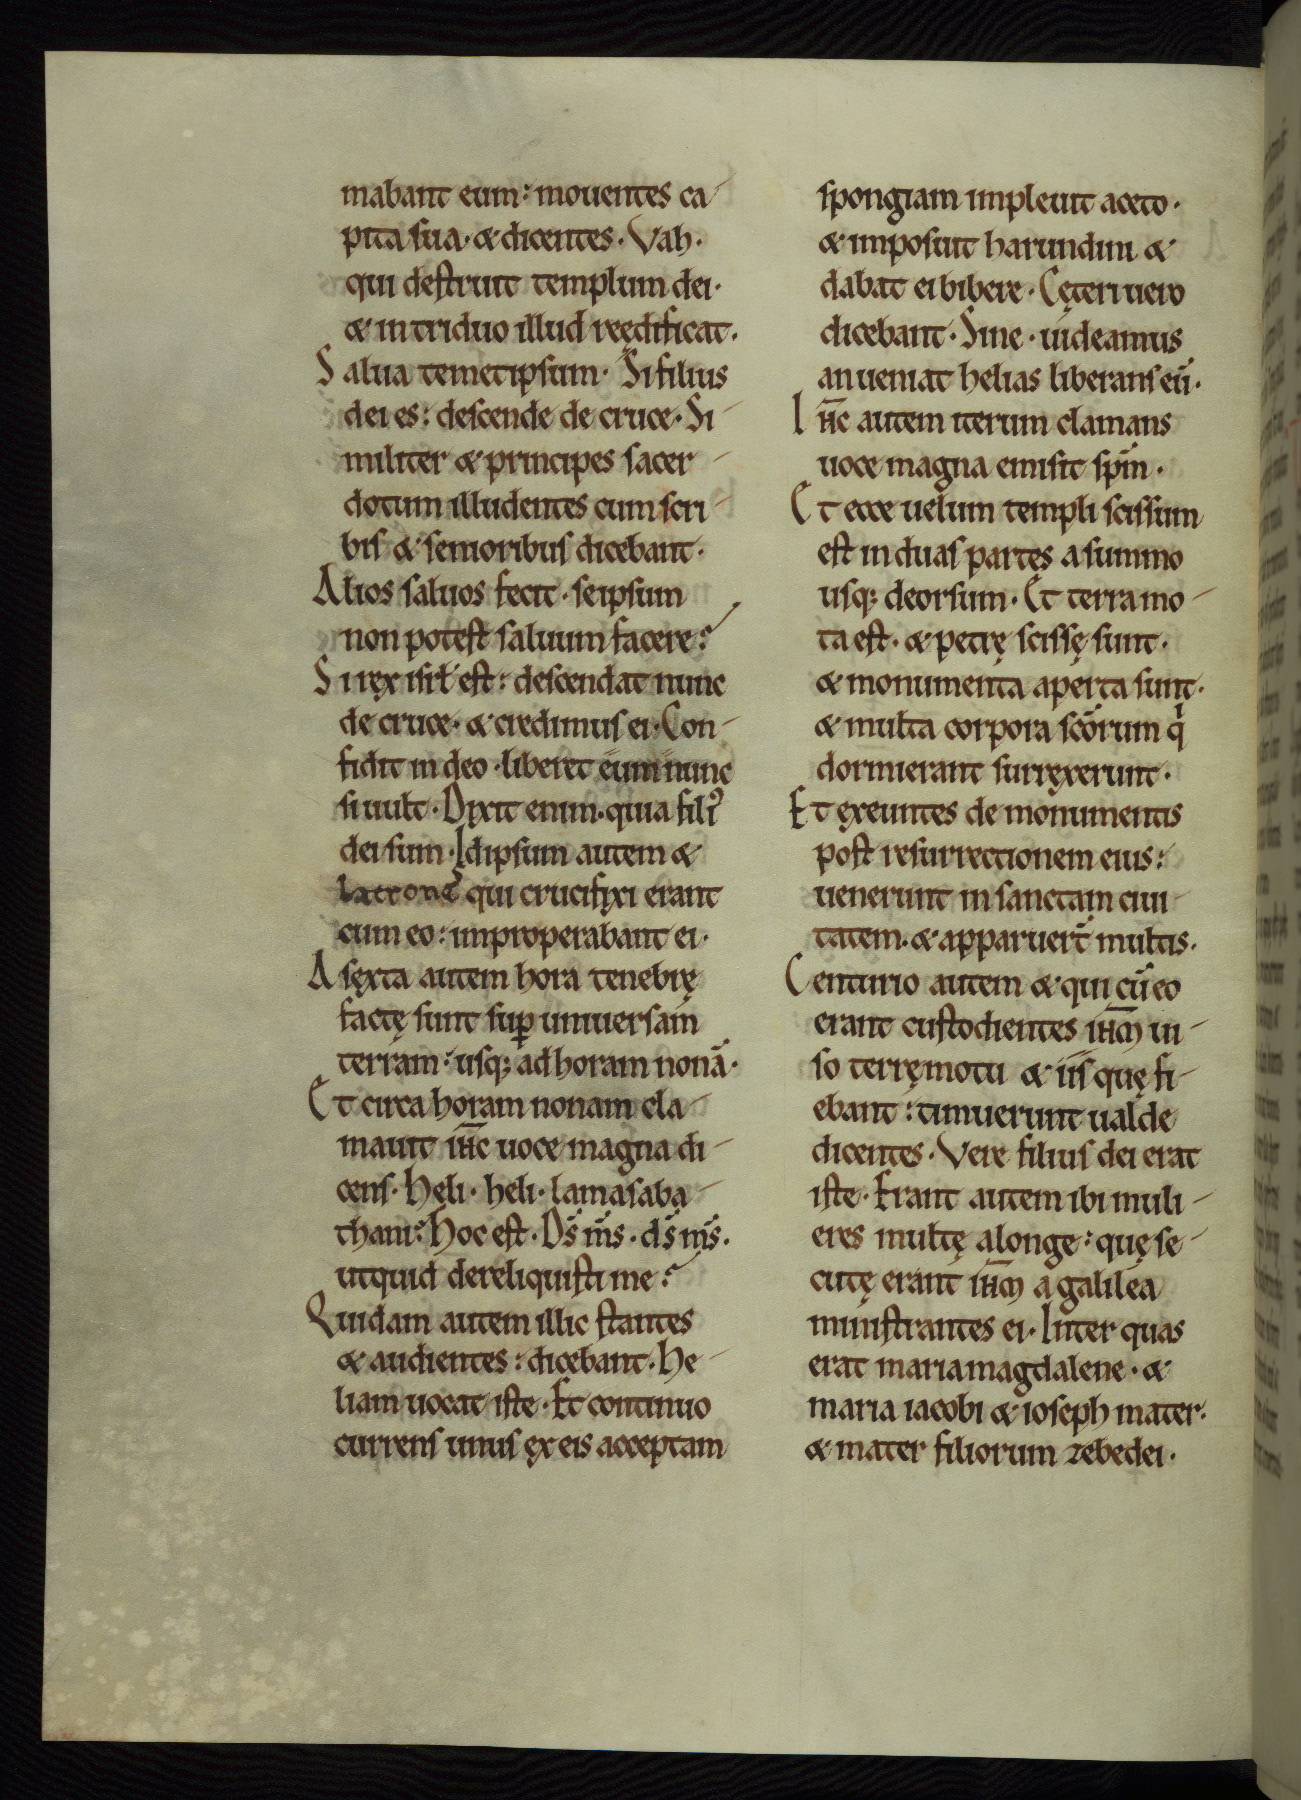 mabant eum: mouentes ca-
pita sua. & dicentes. Vah.
qui destruit templum dei.
& in triduo illud reędificat.
Salua temetipsum. Si filius
dei es: descende de cruce. Si-
militer & principes sacer-
dotum illudentes cum scri-
bis & senioribus dicebant.
Alios saluos fecit. seipsum
non potest saluum facere?
Si ręx isrł est: descendat nunc
de cruce. & credimus ei. Con-
fidit in deo. liberet eum nunc
si uult. Dixit enim. quia filiꝰ
dei sum. Idipsum autem &
latrones qui crucifixi erant
cum eo: improperabant ei.
A sęxta autem hora tenebrę
factę sunt suꝑ uniuersam
terram: usq; ad horam nonā.
Et circa horam nonam cla-
mauit ih̄c uoce magna di-
cens. Heli. heli. lamasaba-
thani: Hoc est. Ds̄ ms̄. ds̄ ms̄.
utquid dereliquisti me?
Quidam autem illic stantes
& audientes: dicebant. He-
liam uocat iste. Et continuo
currens unus ęx eis acceptam
spongiam impleuit aceto.
& imposuit harundini &
dabat ei bibere. Cęteri uero
dicebant. Sine. uideamus
an ueniat helias liberans eū.
Ih̄c autem iterum clamans
uoce magna emisit spm̄.
Et ecce uelum templi scissum
est in duas partes a summo
usq; deorsum. Et terra mo-
ta est. & petrę scissę sunt.
& monumenta aperta sunt.
& multa corpora scōrum qͥ
dormierant surręxerunt.
Et ęxeuntes de monumentis
post resurrectionem eius:
uenerunt in sanctam ciui-
tatem. & apparuer̄t multis.
Centurio autem & qui cū eo
erant custodientes ih̄m ui-
so terręmotu & iis quę fi-
ebant: timuerunt ualde
dicentes. Vere filius dei erat
iste. Erant autem ibi muli-
eres multę alonge: quę se-
cutę erant ih̄m a galilea
ministrantes ei. Inter quas
erat maria magdalene. &
maria iacobi & ioseph mater.
& mater filiorum zebedei.